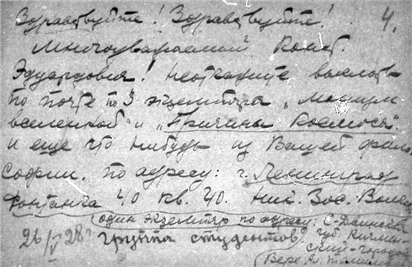 Здравствуйте! Здравствуйте! 4.
Многоуважаемый Конст.
Эдуардович! Не откажите выслать
по почте по 3 экземпляра „Монизм
вселенной" и „Причина Космоса"
и еще что нибудь из Вашей фило
софии. по адресу: г. Ленинград
Фонтанка 40 кв. 40. Ник. Зос.
один экземпляр по адресу:
26/V 28 г группа студентов
Вере